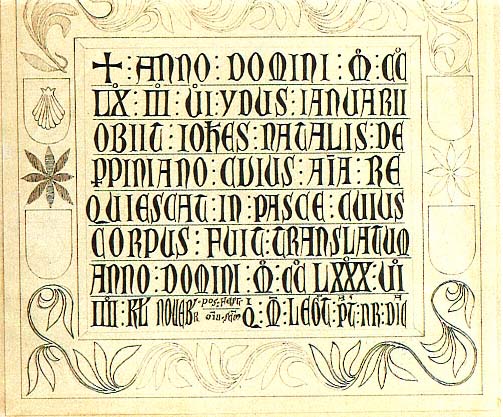 ✝ : ANNO : DOMINI : M̊ : CC̊
LX̊ : III : VI̊ : YDUS : IANUARII
OBIIT : IOHES : NATALIS : DE
PPINIANO : CUIUS : AIA : RE
QUIESCAT : IN : PASCE : CUIUS
CORPUS : FUIT : TRANSLATUM
ANNO : DOMINI : M̊ : CC̊ LXXX̊ : VI̊
IIII : KL NOVEBR Q : M : LEGT : PT : NR : DIC